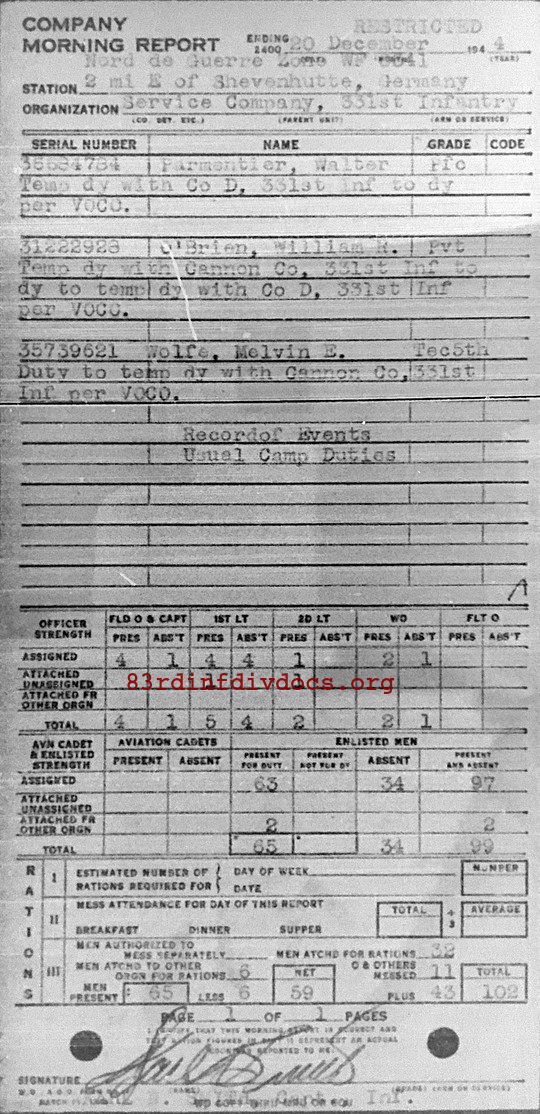 COMPANY
MORNING REPORT
RESTRICTED
ENDING 2400 20 December 194 4
(MONTH) (YEAR)
Nord de Guerre Zone WF
STATION 2 mi E of Shevenhutte, Germany
ORGANIZATION Service Company, 331st Infantry
(CO. DET. ETC.) (PARENT UNIT) (ARM OR SERVICE)
SERIAL NUMBER NAME GRADE CODE
Parmentier, Walter Pfc
Temp dy with Co D, 331st Inf to dy
per VOCO.
31222928 O'Brien, William R. Pvt
Temp dy with Cannon Co, 331st Inf to
dy to temp dy with Co D, 331st Inf
per VOCO.
35739621 Wolfe, Melvin E. Tec5th
Duty to temp dy with Cannon Co, 331st
Inf per VOCO.
Recordof Events
Usual Camp Duties
OFFICER STRENGTH FLD O & CAPT 1ST LT 2D LT WO FLT O
PRES ABS'T PRES ABS'T PRES ABS'T PRES ABS'T PRES ABS'T
ASSIGNED 4 1 4 4 1 2 1
ATTACHED UNASSIGNED 1 1
83rdinfdivdocs.org
ATTACHED FR OTHER ORGN
TOTAL 4 1 5 4 2 2 1
AVN CADET & ENLISTED STRENGTH AVIATION CADETS ENLISTED MEN
PRESENT ABSENT PRESENT FOR DUTY PRESENT NOT FOR DY ABSENT PRESENT AND ABSENT
ASSIGNED 63 34 97
ATTACHED UNASSIGNED
ATTACHED FR OTHER ORGN 2 2
TOTAL 65 34 99
RATIONS
I ESTIMATED NUMBER OF RATIONS REQUIRED FOR DAY OF WEEK DATE NUMBER
II MESS ATTENDANCE FOR DAY OF THIS REPORT TOTAL ÷ 3 AVERAGE
BREAKFAST DINNER SUPPER
III MEN AUTHORIZED TO MESS SEPARATELY MEN ATCHD FOR RATIONS 32
MEN ATCHD TO OTHER ORGN FOR RATIONS 6 NET O & OTHERS MESSED 11 TOTAL
MEN PRESENT 65 LESS 6 59 PLUS 43 102
PAGE 1 OF 1 PAGES
I CERTIFY THAT THIS MORNING REPORT IS CORRECT AND
SIGNATURE
Inf.